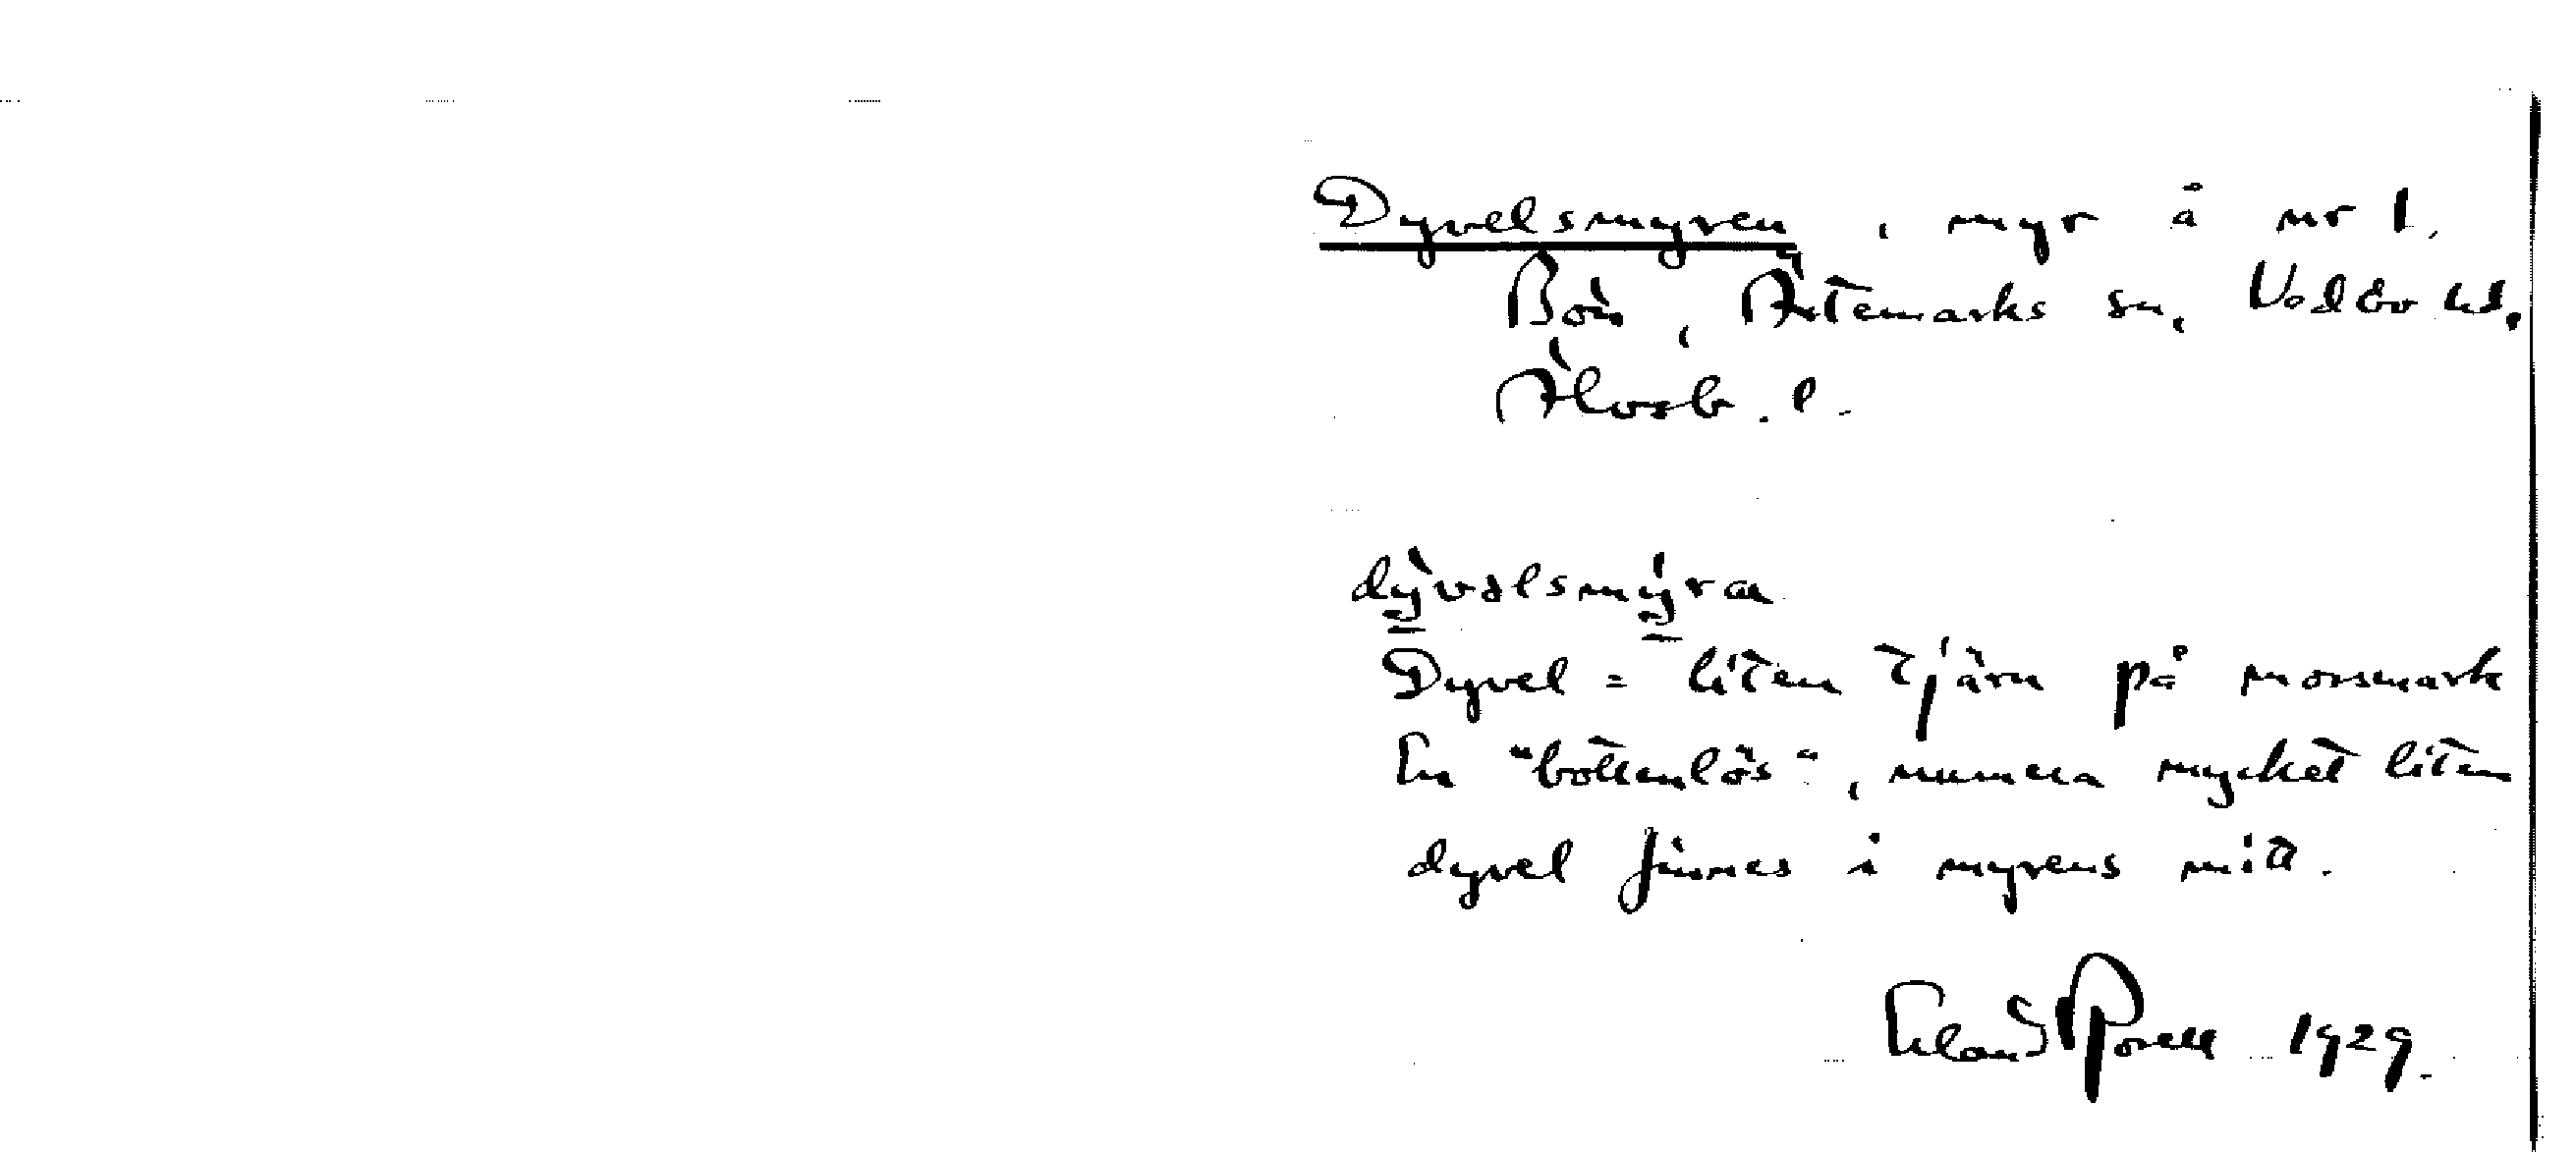 Dyvelsmyren, myr å nr 1.
Bön, Ärtemarks sn, Vedbo hd,
Älvsb. l.
dỳvəlsmýra
Dyvel = liten tjärn på mossmark
En "bottenlös", numera mycket liten
dyvel finnes i myrens mitt.
Erland Borell 1929.